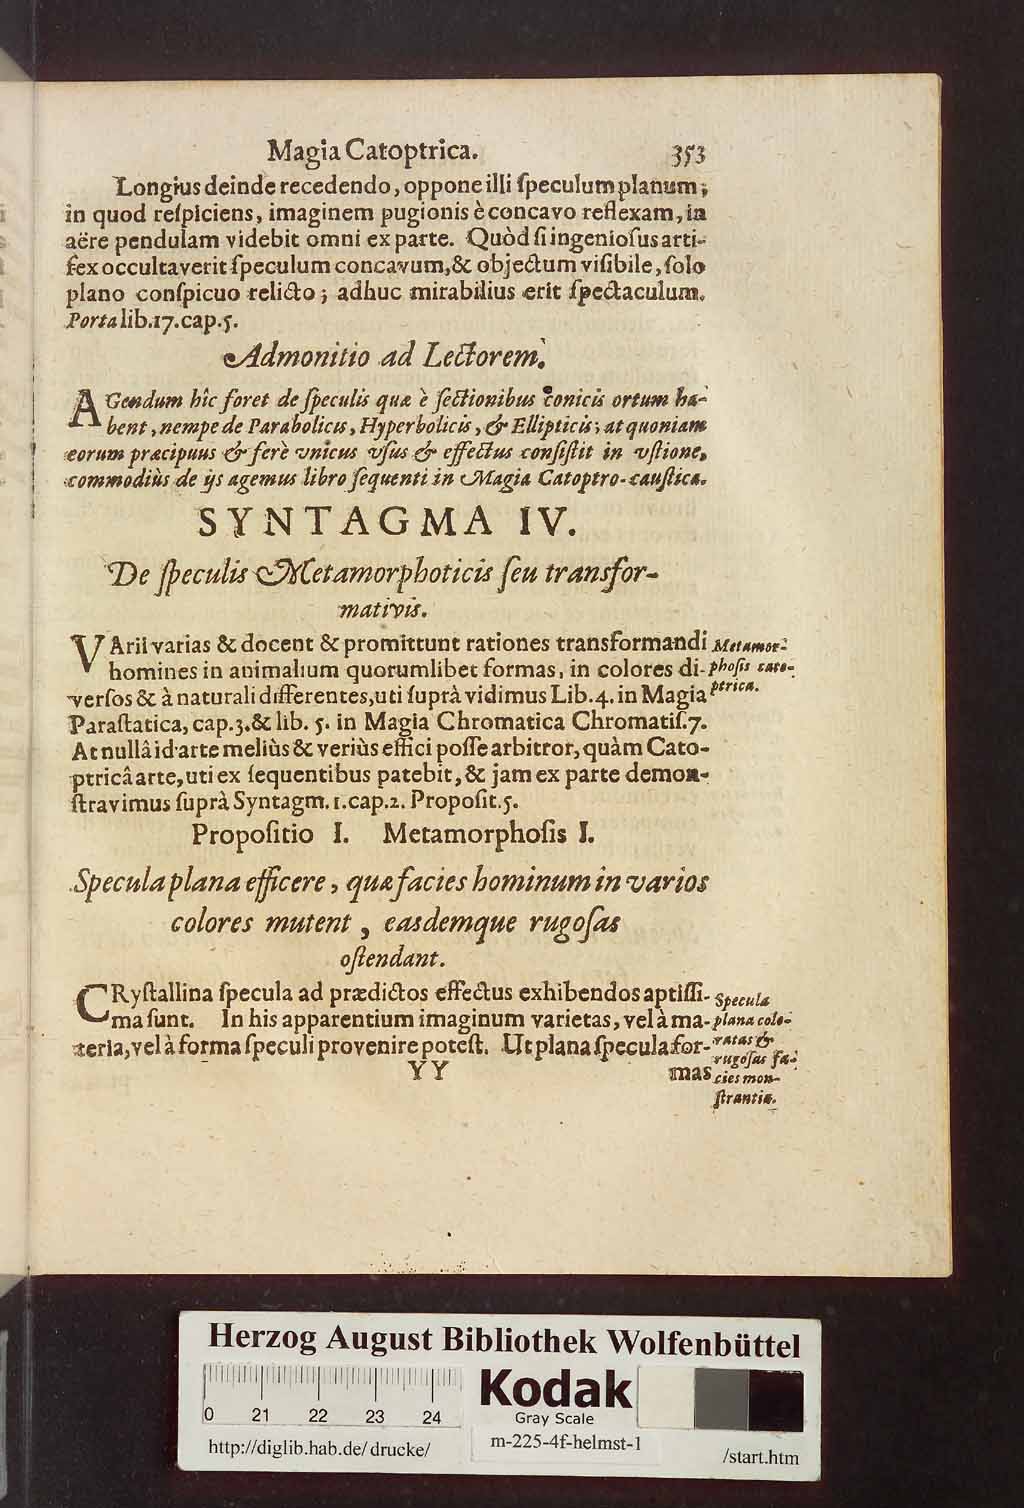 Magia Catoptrica. 353
Longius deinde recedendo, oppone illi ſpeculum planum;
in quod reſpiciens, imaginem pugionis è concavo reflexam, in
aëre pendulam videbit omni ex parte. Quòd ſi ingenioſus arti-
fex occultaverit ſpeculum concavum, & objectum viſibile, ſolo
plano conſpicuo relicto; adhuc mirabilius erit ſpectaculum.
Porta lib.17.cap.5.
Admonitio ad Lectorem.
AGendum hîc foret de ſpeculis quæ è ſectionibus conicis ortum ha-
bent, nempe de Parabolicis, Hyperbolicis, & Ellipticis; at quoniam
eorum præcipuus & ferè vnicus vſus & effectus conſiſtit in vſtione,
commodiùs de ijs agemus libro ſequenti in Magia Catoptro-cauſtica.
SYNTAGMA IV.
De ſpeculis Metamorphoticis ſeu transfor-
mativis.
VArii varias & docent & promittunt rationes transformandi
homines in animalium quorumlibet formas, in colores di-
verſos & à naturali differentes, uti ſuprà vidimus Lib.4. in Magia
Paraſtatica, cap.3.& lib. 5. in Magia Chromatica Chromatiſ.7.
At nullâ id arte meliùs & veriùs effici poſſe arbitror, quàm Cato-
ptricâ arte, uti ex ſequentibus patebit, & jam ex parte demon-
ſtravimus ſuprà Syntagm. 1.cap.2. Propoſit.5.
Metamor-
phoſis cato-
ptrica.
Propoſitio I. Metamorphoſis I.
Specula plana efficere, quæ facies hominum in varios
colores mutent, easdemque rugoſas
oſtendant.
CRyſtallina ſpecula ad prædictos effectus exhibendos aptiſſi-
ma ſunt. In his apparentium imaginum varietas, vel à ma-
teria, vel à forma ſpeculi provenire poteſt. Ut plana ſpecula for-
YY mas
Specula
plana colo-
ratas &
rugoſas fa-
cies mon-
ſtrantia.
Herzog August Bibliothek Wolfenbüttel
0 21 22 23 24
Kodak
Gray Scale
http://diglib.hab.de/drucke/
m-225-4f-helmst-1
/start.htm